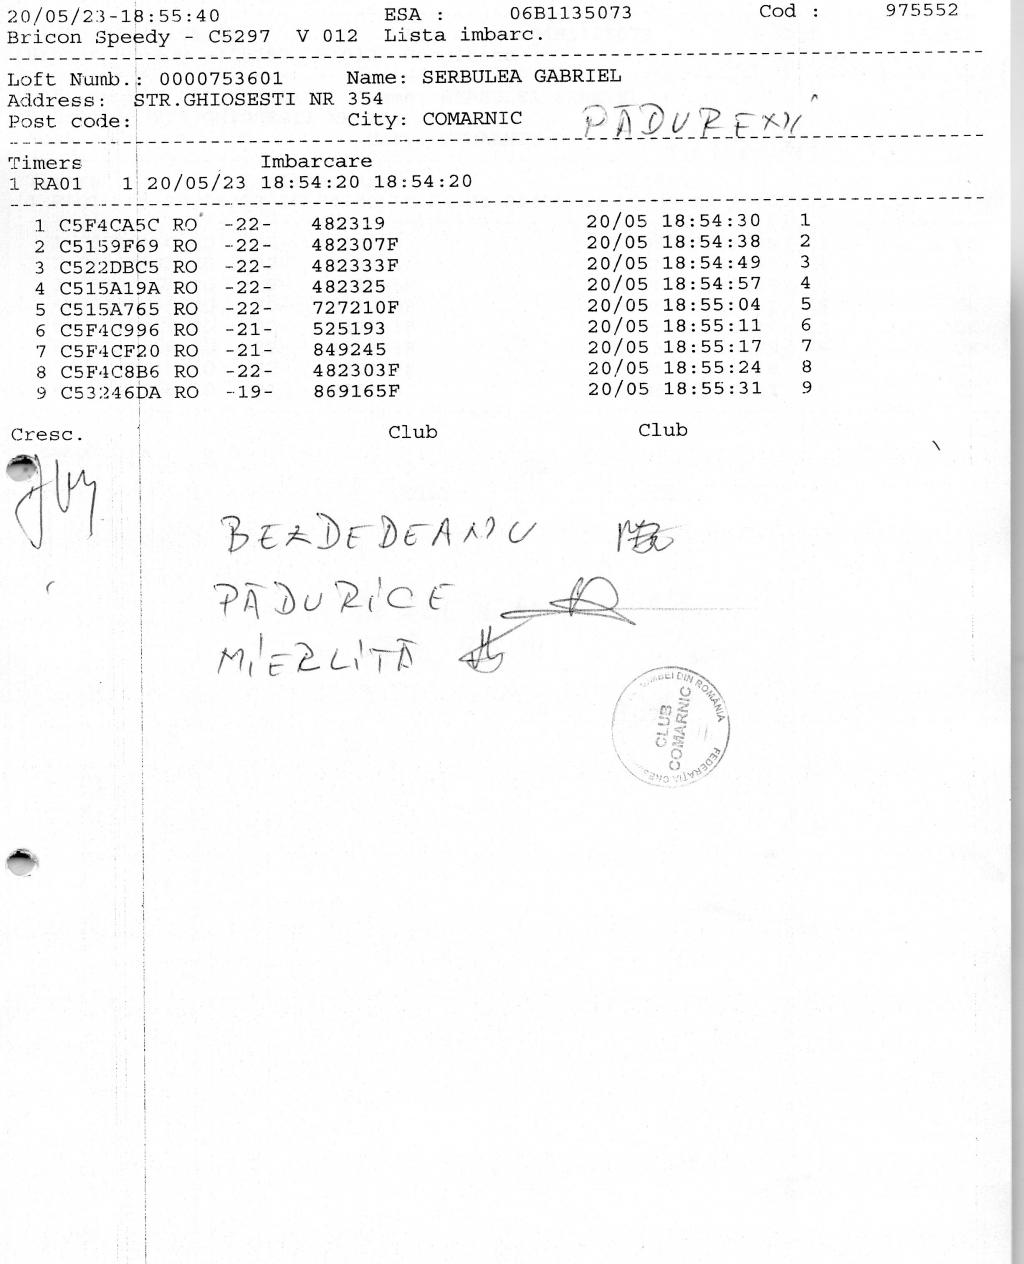 20/05/23-18:55:40 ESA : 06B1135073 Cod : 975552
Bricon Speedy - C5297 V 012 Lista imbarc.
Loft Numb.: 0000753601 Name: SERBULEA GABRIEL
Address: STR.GHIOSESTI NR 354
Post code: City: COMARNIC
Timers Imbarcare
1 RA01 1 20/05/23 18:54:20 18:54:20
1 C5F4CA5C RO -22- 482319 20/05 18:54:30 1
2 C5159F69 RO -22- 482307F 20/05 18:54:38 2
3 C522DBC5 RO -22- 482333F 20/05 18:54:49 3
4 C515A19A RO -22- 482325 20/05 18:54:57 4
5 C515A765 RO -22- 727210F 20/05 18:55:04 5
6 C5F4C996 RO -21- 525193 20/05 18:55:11 6
7 C5F4CF20 RO -21- 849245 20/05 18:55:17 7
8 C5F4C8B6 RO -22- 482303F 20/05 18:55:24 8
9 C53246DA RO -19- 869165F 20/05 18:55:31 9
Cresc. Club Club
BEZDEDEANU
PĂDURICE
MIERLITĂ
DIN ROMÂNIA
CLUB
COMARNIC
FEDERAȚIA